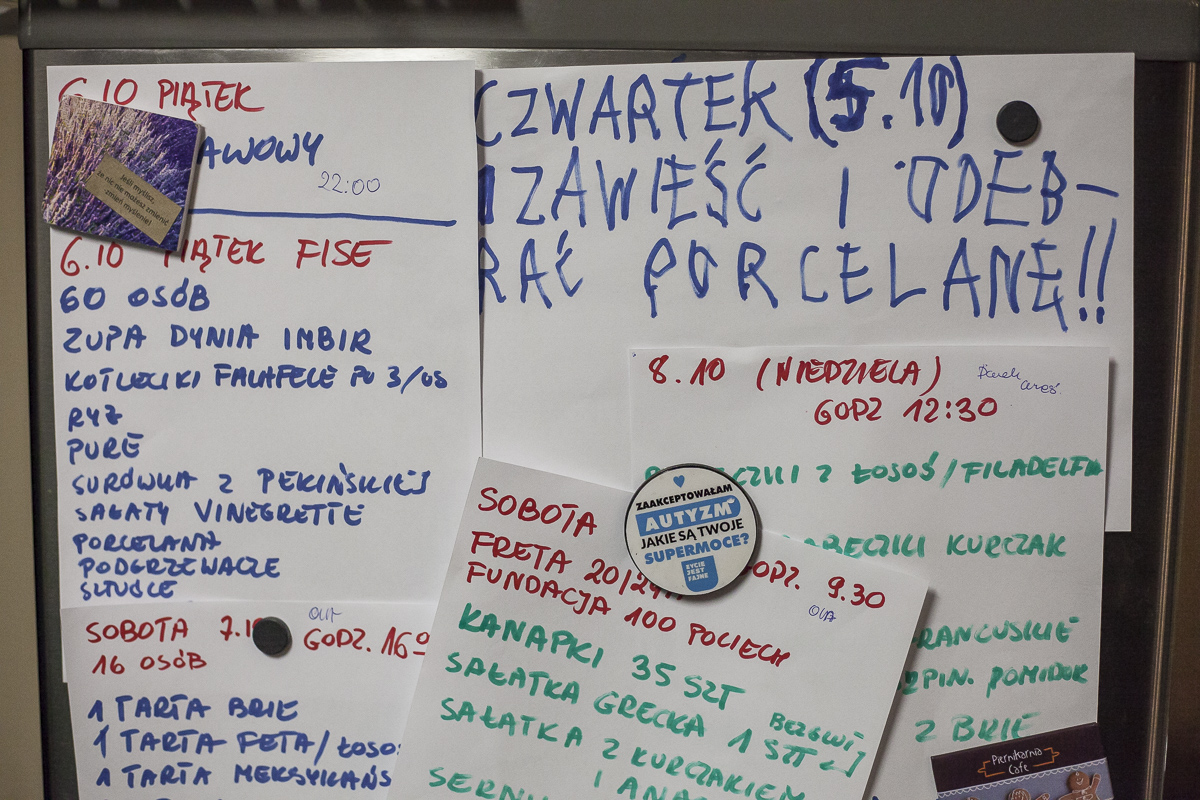 6.10 PIĄTEK
AWOWY
22:00
Jeśli myślisz,
że nic nie możesz zmienić
zmień myślenie!
6.10 PIĄTEK FISE
60 OSÓB
ZUPA DYNIA IMBIR
KOTLECIKI FALAFELE PO 3/OS
RYŻ
PURE
SURÓWKA Z PEKIŃSKIEJ
SAŁATY VINEGRETTE
PORCELANA
PODGRZEWACZE
SZTUĆCE
CZWARTEK (5.10)
ZAWIEŚĆ I ODEB-
RAĆ PORCELANĘ!!
8.10 (NIEDZIELA)
GODZ 12:30
Z ŁOSOŚ/FILADELFIA
KURCZAK
RANCUSKIE
PIN. POMIDOR
Z BRIE
ZAAKCEPTOWAŁAM
AUTYZM
JAKIE SĄ TWOJE
SUPERMOCE?
ŻYCIE
JEST
FAJNE
SOBOTA
ODZ. 9.30
OLA
FRETA 20/24
FUNDACJA 100 POCIECH
KANAPKI 35 SZT
SAŁATKA GRECKA 1 SZT
SAŁATKA Z KURCZAKIEM
I ANA
SERNI
SOBOTA 7.1
OLA
GODZ. 16
16 OSÓB
1 TARTA BRIE
1 TARTA FETA/ŁOSO
1 TARTA MEKSYKAŃS
Piernikarnia
Cafe